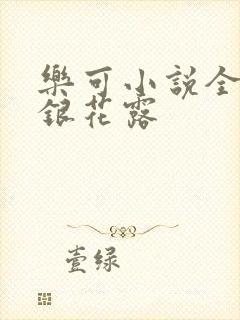 樂可小說全
銀花露
壹绿